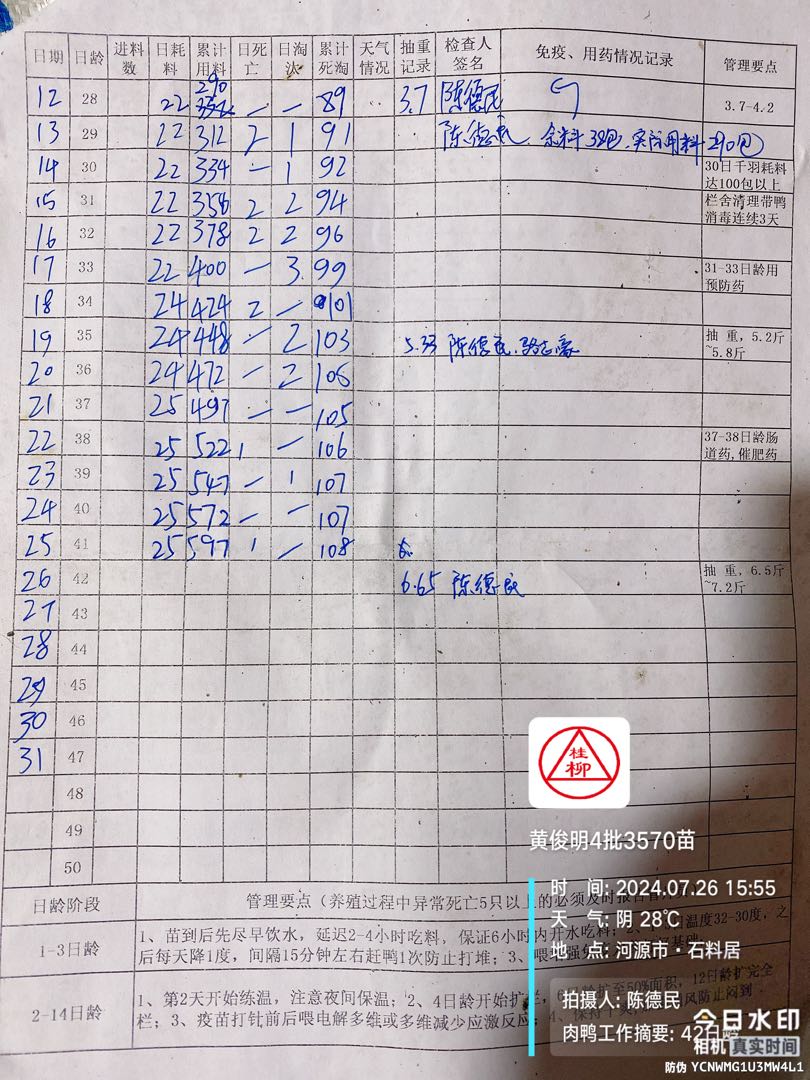 日期 日龄 进料数 日耗料 累计用料 日死亡 日淘汰 累计死淘 天气情况 抽重记录 检查人签名 免疫、用药情况记录 管理要点
12 28 22 290 — — 89 3.7 陈德民 3.7-4.2
13 29 22 312 2 1 91 陈德民 余料38包.实际用料290包
14 30 22 334 — 1 92 30日千羽耗料达100包以上
15 31 22 356 2 2 94 栏舍清理带鸭消毒连续3天
16 32 22 378 2 2 96
17 33 22 400 — 3 99 31-33日龄用预防药
18 34 24 424 2 — 101
19 35 24 448 — 2 103 5.33 陈德民 抽 重，5.2斤~5.8斤
20 36 24 472 — 2 106
21 37 25 497 — — 105
22 38 25 522 1 — 106 37-38日龄肠道药,催肥药
23 39 25 547 — 1 107
24 40 25 572 — — 107
25 41 25 597 1 — 108
26 42 6.65 陈德民 抽 重，6.5斤~7.2斤
27 43
28 44
29 45
30 46
31 47
48
49
50
桂柳
黄俊明4批3570苗
时 间: 2024.07.26 15:55
天 气: 阴 28℃
地 点: 河源市·石料居
拍摄人: 陈德民
肉鸭工作摘要: 42日龄
日龄阶段 管理要点（养殖过程中异常死亡5只以上的必须及时报告
1-3日龄 1、苗到后先尽早饮水，延迟2-4小时吃料，保证6小时内开水吃料；温度32-30度，之
后每天降1度，间隔15分钟左右赶鸭1次防止打堆；3、
2-14日龄 1、第2天开始练温，注意夜间保温；2、4日龄开始扩栏，扩至50%面积，12日龄扩完全
栏；3、疫苗打针前后喂电解多维或多维减少应激反应；4、保持 防止闷到
今日水印
相机 真实时间
防伪 YCNWMG1U3MW4L1